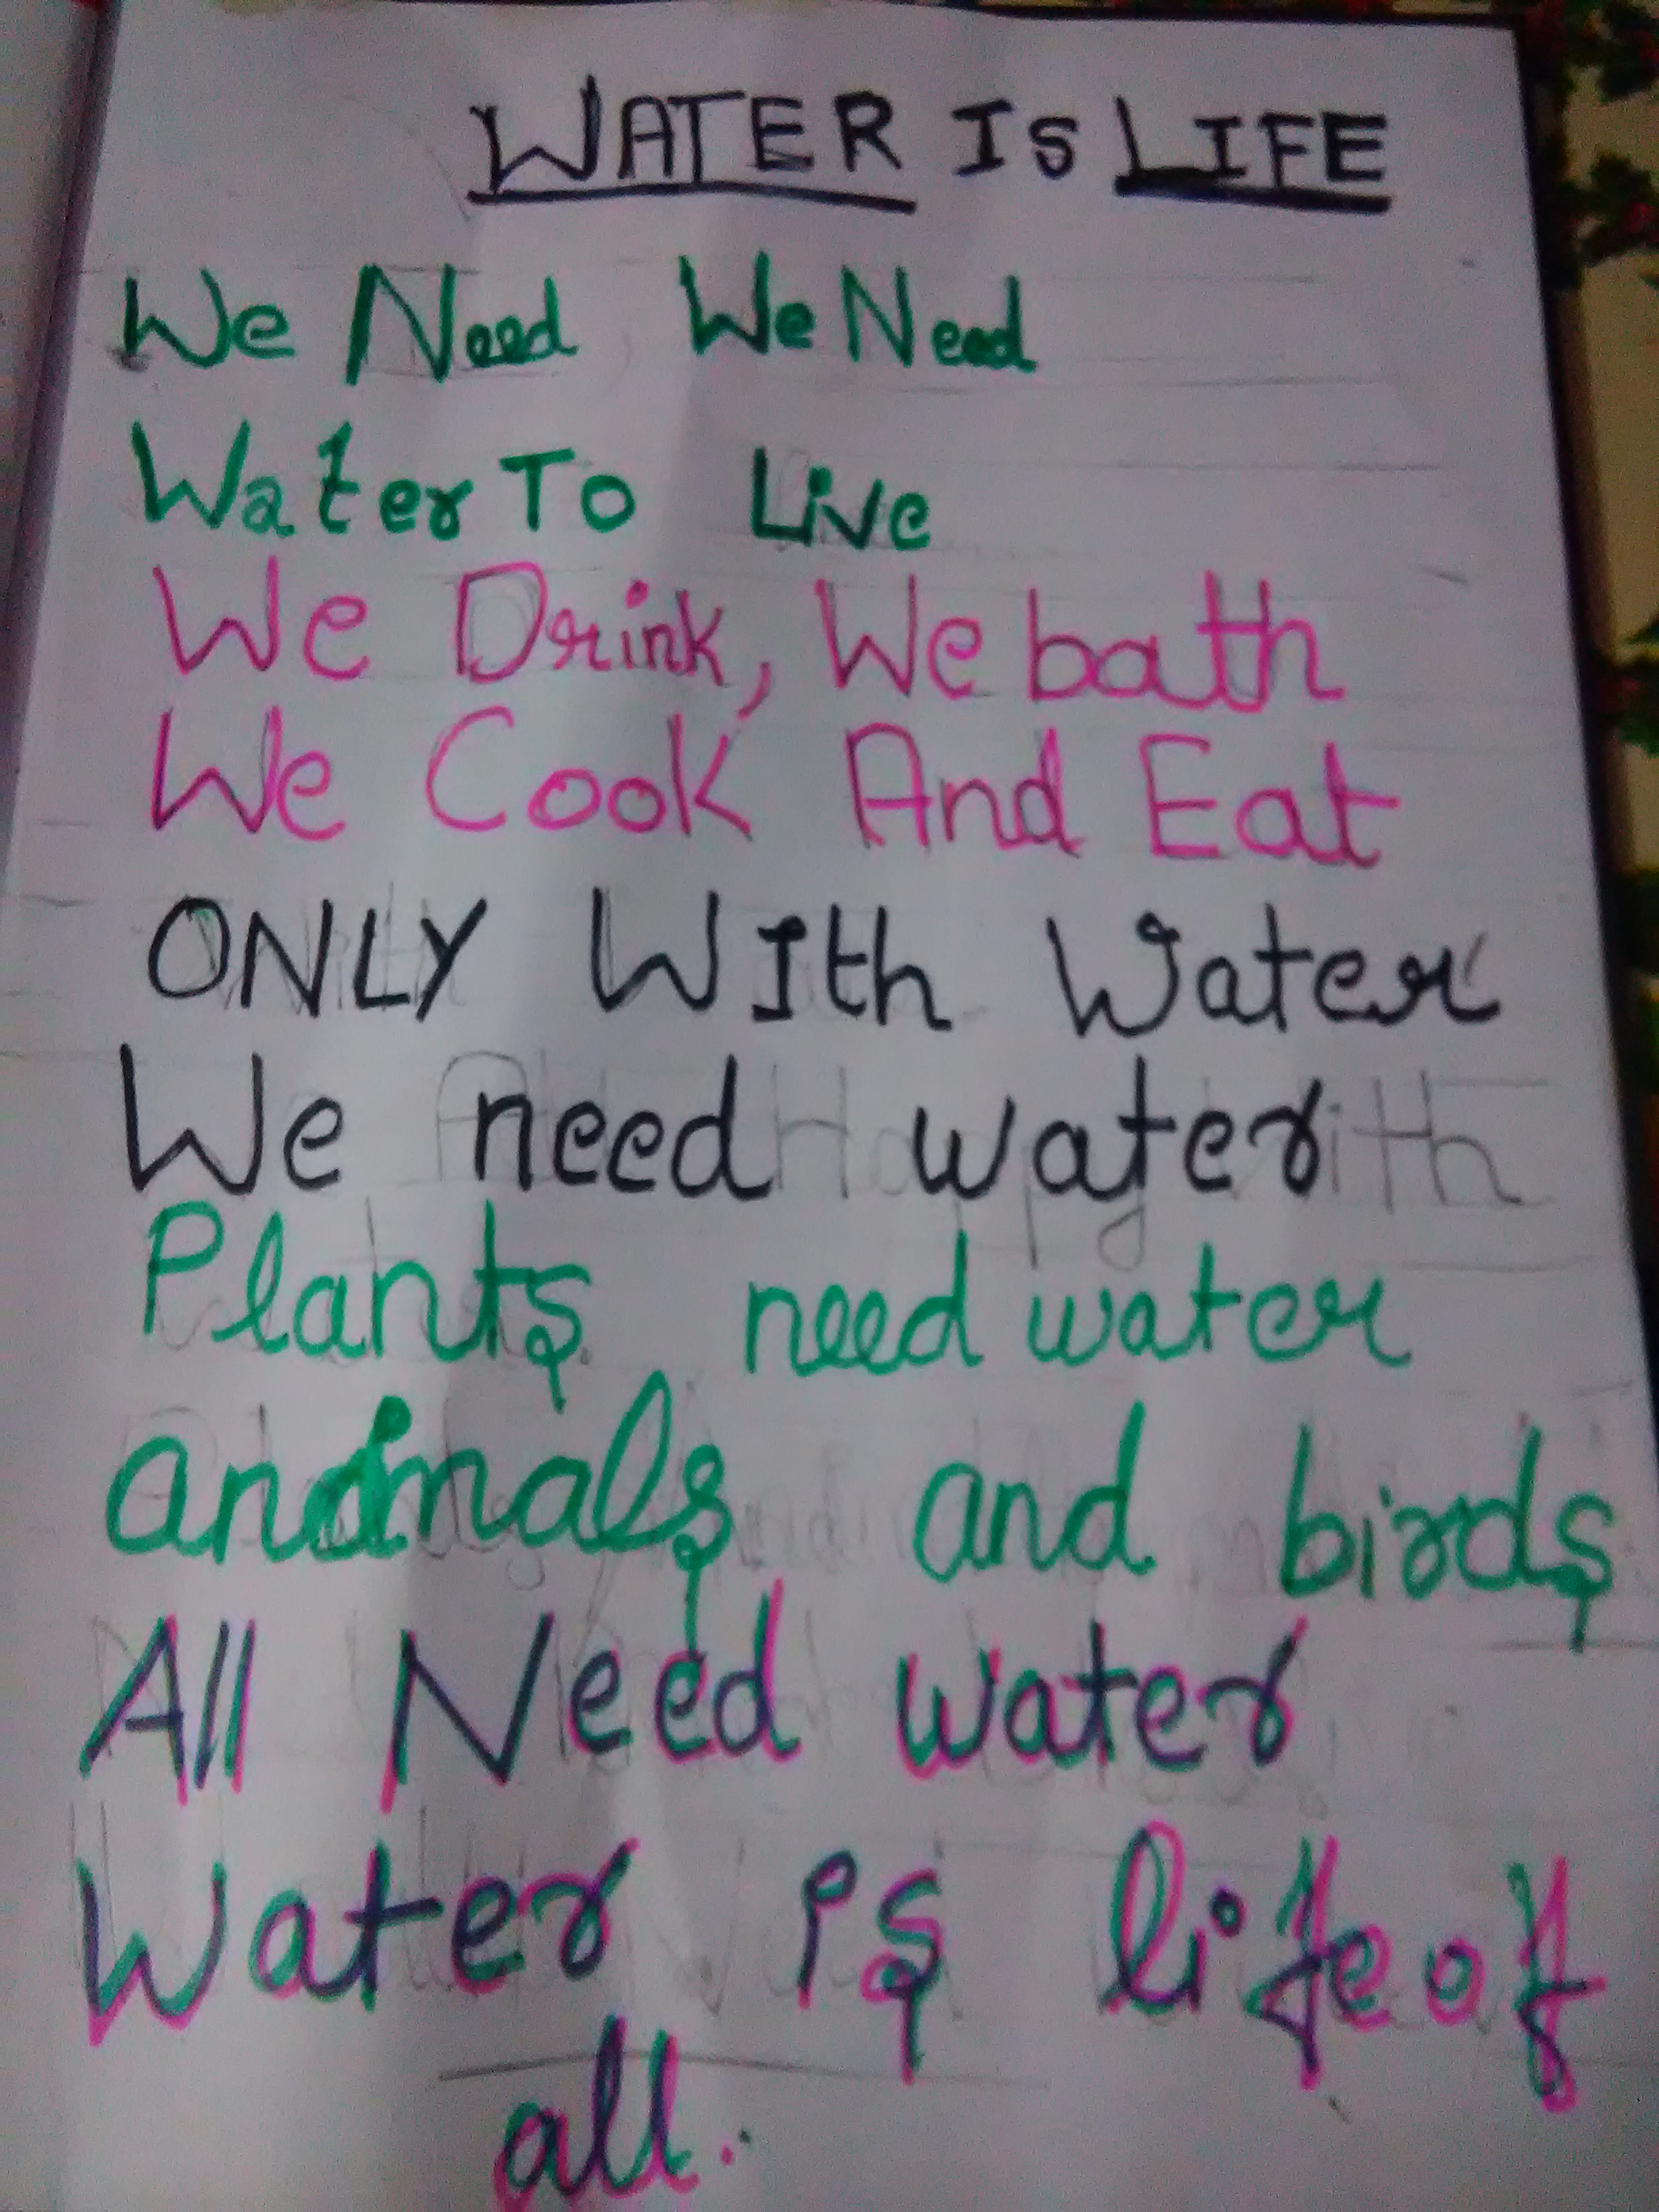 WATER IS LIFE
We Need We Need
Water To Live
We Drink, We bath
We Cook And Eat
ONLY WIth Water
We need water
Plants need water
animals and birds
All Need water
Water is life of
all.